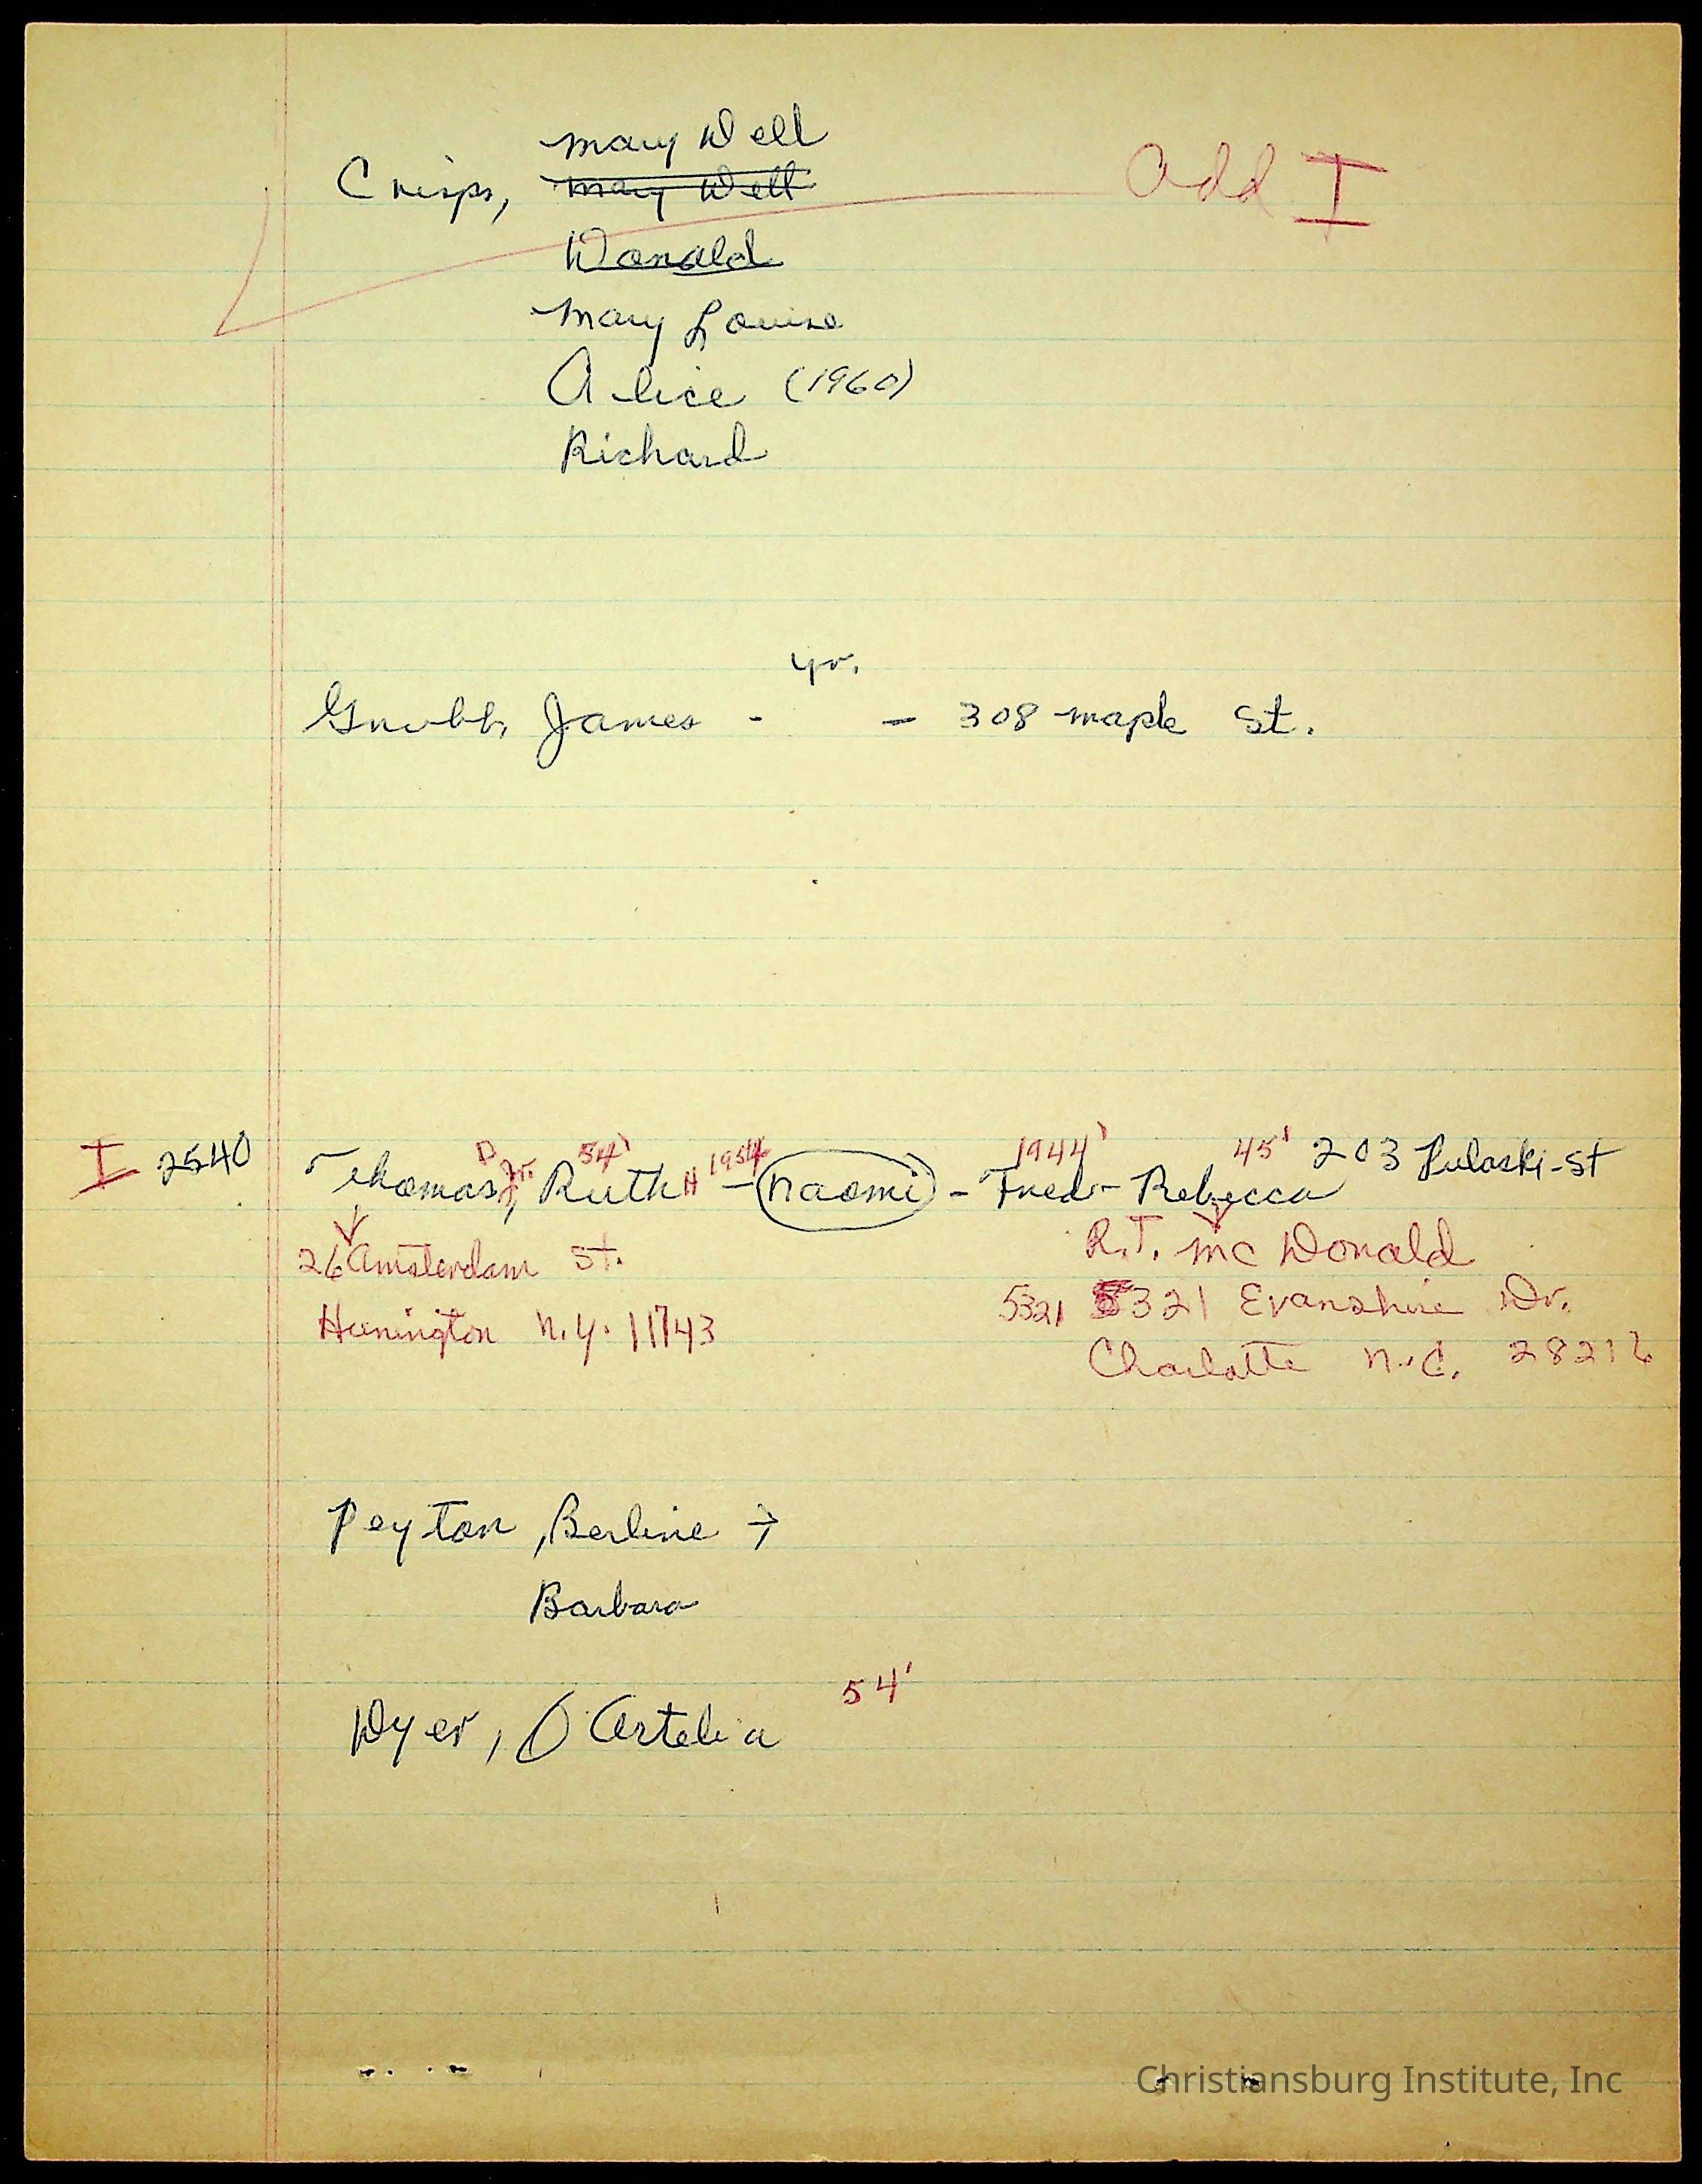 Mary Dell
Crisps, Mary Dell
Add I
Donald
Mary Louise
Alice (1960)
Richard
yr.
Grubb, James - - 308 Maple St.
D Jr. 54' 1954 1944' 45'
I 2540 Thomas, Ruth H - Naomi - Fred - Rebecca 203 Pulaski-St
26 Amsterdam St.
R.T. McDonald
Hunington N.Y. 11743
5321 5321 Evanshire Dr.
Charlotte N.C. 28216
Peyton, Berline →
Barbara
54'
Dyer, O Artelia
Christiansburg Institute, Inc